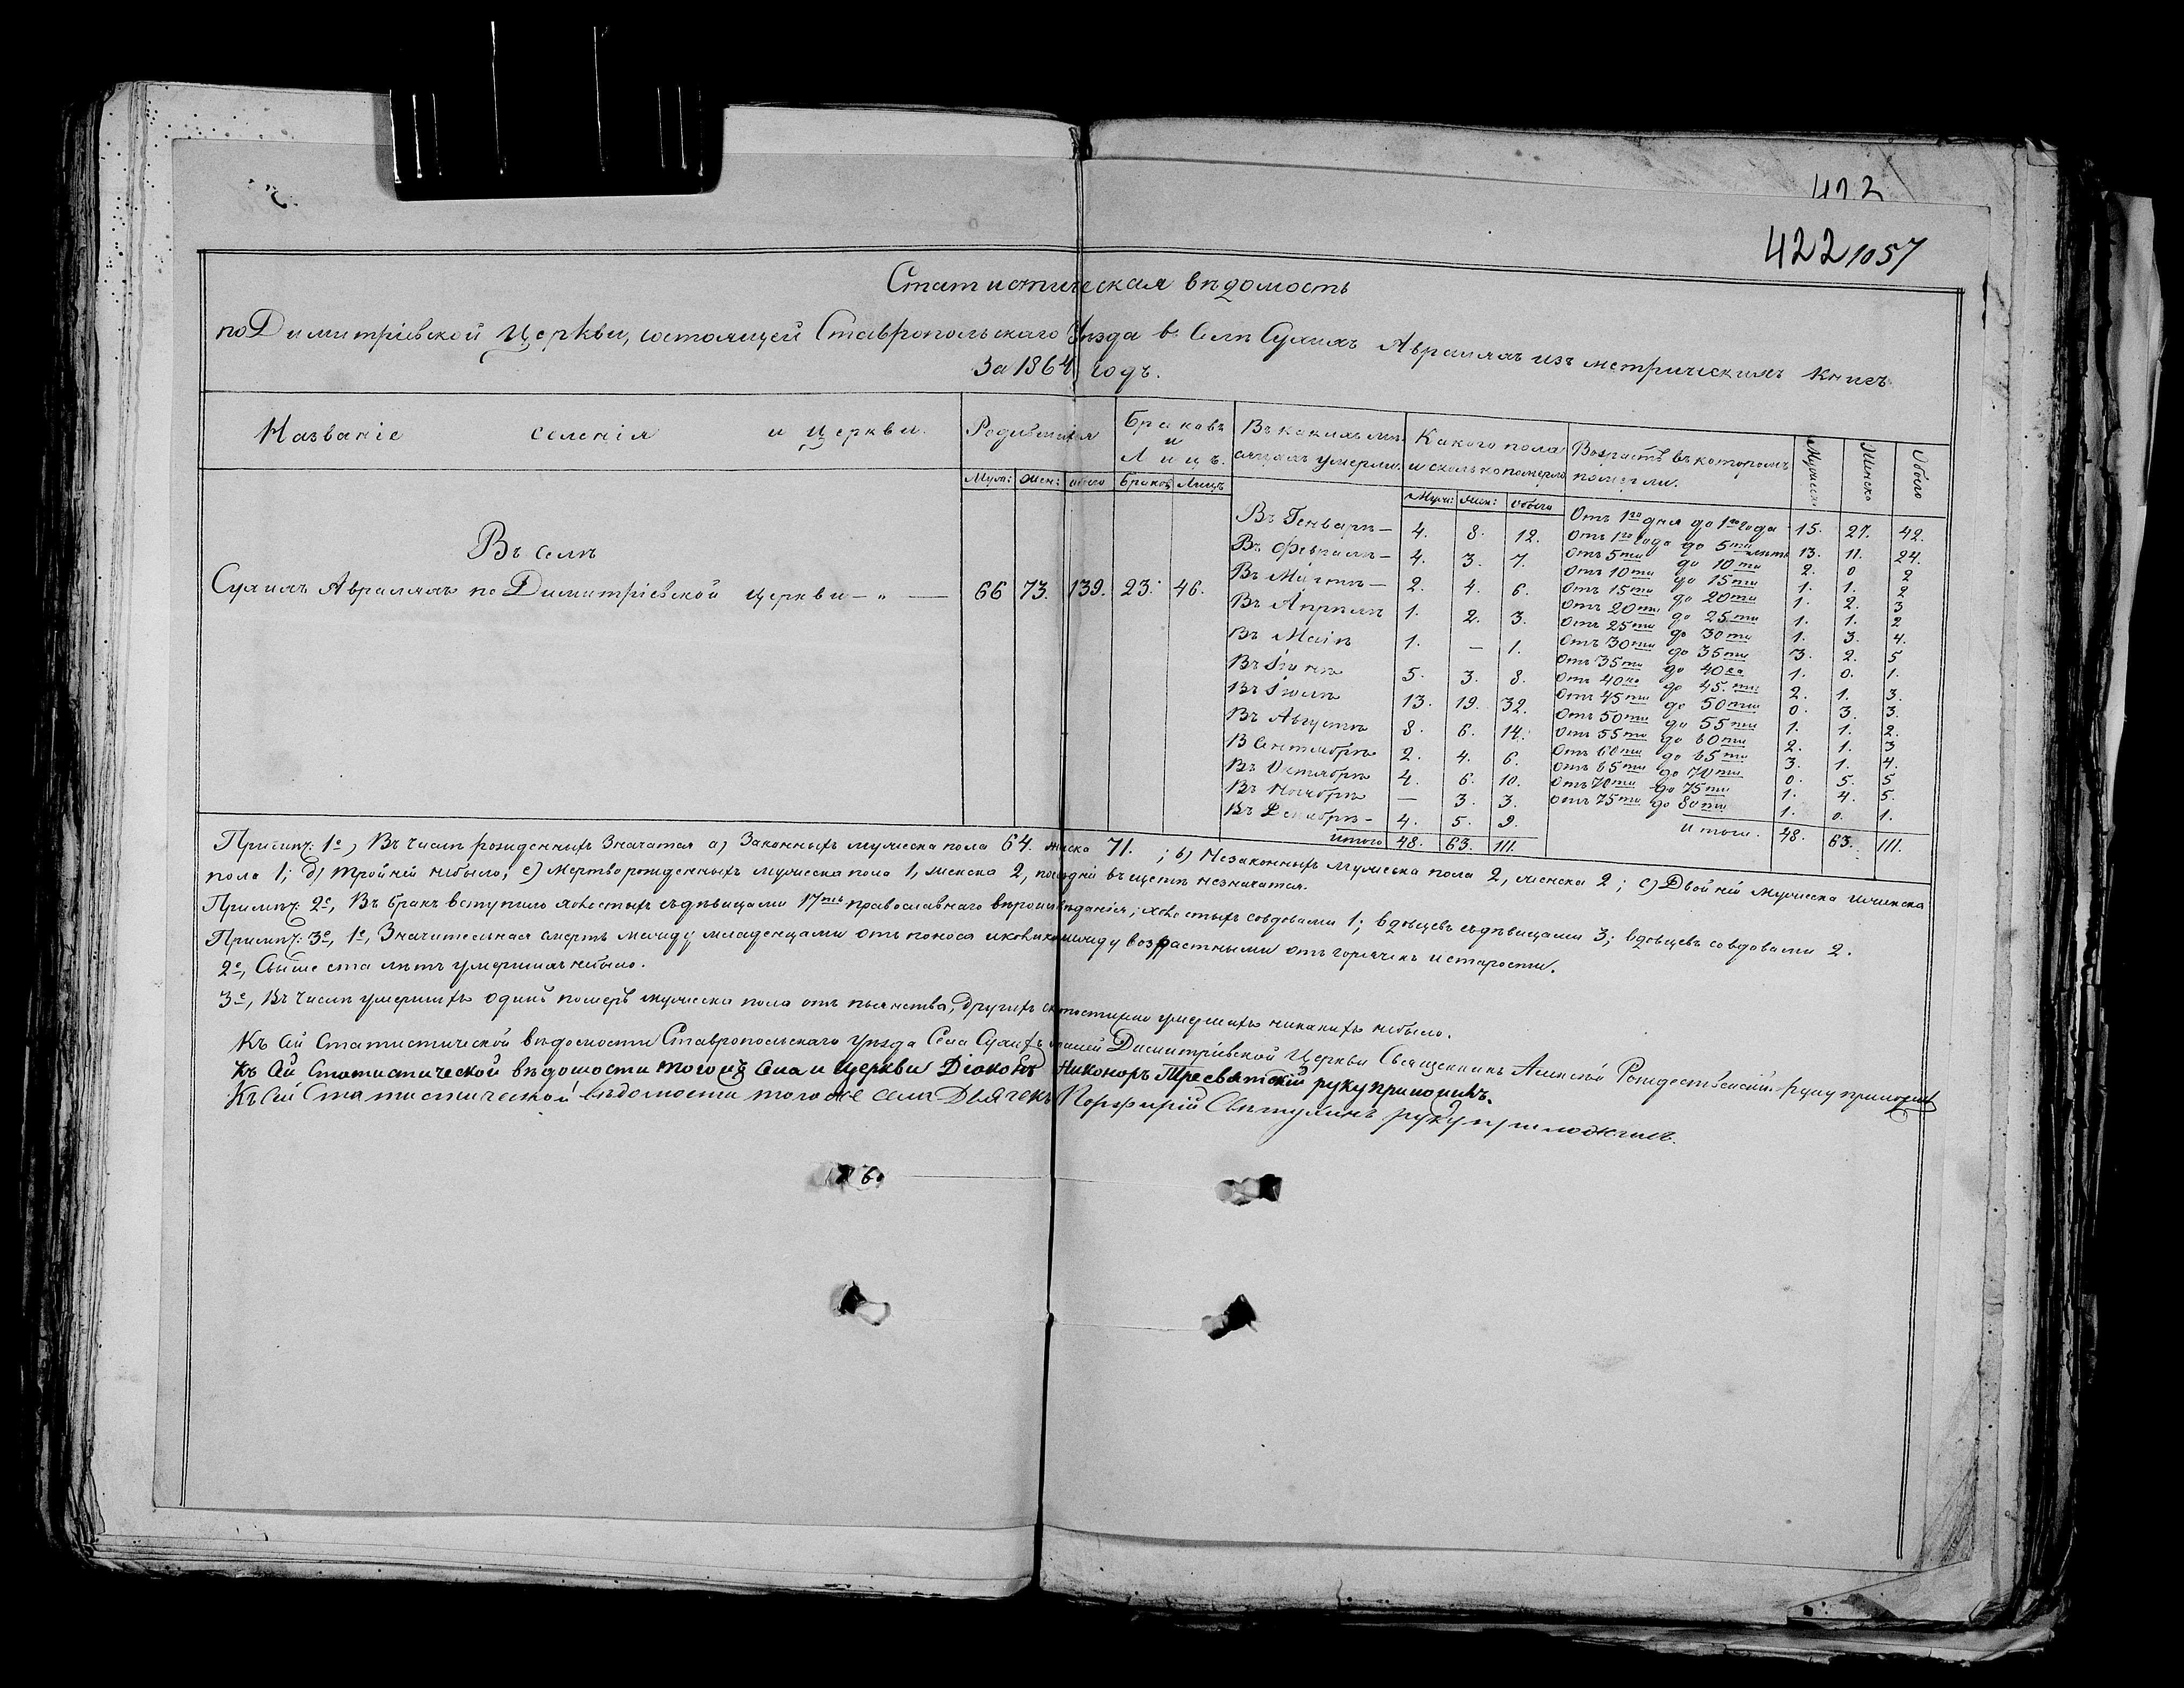 422
422 1057
Статистическая вѣдомость
по Димитріевской Церкви, состоящей Ставропольскаго Уѣзда в Селѣ Сухихъ Авралахъ изъ метрическихъ книгъ
За 1864 годъ.
Названіе селенія и Церкви. Родившихся Браковъ и Лицъ. Въ какихъ мѣсяцахъ умерли. Какого пола и сколько померло Возрастъ въ которомъ померли. Мужеска Женска Обоего
Муж: Жен: обоего Браковъ Лицъ Муж: жен: Обоего
Въ селѣ
Сухихъ Авралахъ по Димитріевской церкви — „ — 66 73. 139. 23. 46.
Въ Генварѣ — 4. 8. 12.
Въ Февралѣ — 4. 3. 7.
Въ Мартѣ — 2. 4. 6.
Въ Апрѣлѣ 1. 2. 3.
Въ Маіѣ 1. — 1.
Въ Іюнѣ 5. 3. 8.
Въ Іюлѣ 13. 19. 32.
Въ Августѣ 8. 6. 14.
В Сентябрѣ 2. 4. 6.
Въ Октябрѣ 4. 6. 10.
Въ Ноябрѣ — 3. 3.
Въ Декабрѣ - 4. 5. 9.
Итого 48. 63. 111.
Отъ 1го дня до 1го года 15. 27. 42.
Отъ 1го года до 5ти лѣтъ 13. 11. 24.
Отъ 5ти до 10ти 2. 0 2
Отъ 10ти до 15ти 1. 1. 2
Отъ 15ти до 20ти 1. 2. 3
Отъ 20ти до 25ти 1. 1. 2
Отъ 25ти до 30ти 1. 3. 4.
Отъ 30ти до 35ти 3. 2. 5
Отъ 35ти до 40ка 1. 0. 1.
Отъ 40ка до 45.ти 2. 1. 3.
Отъ 45ти до 50ти 0. 3. 3.
Отъ 50ти до 55ти 1. 1. 2.
Отъ 55ти до 60ти 2. 1. 3
Отъ 60ти до 65ти 3. 1. 4.
Отъ 65ти до 70ти 0. 5. 5
Отъ 70ти до 75ти 1. 4. 5.
Отъ 75ти до 80ти 1. 0. 1.
Итого. 48. 63. 111.
Примѣч: 1е, Въ числѣ рожденныхъ Значатся а) Законныхъ мужеска пола 64. женска 71. ; b) Незаконныхъ мужеска пола 2, женска 2 ; c) Двойней мужеска и женска
пола 1; d) тройней небыло; e) мертворожденныхъ мужеска пола 1, женска 2, въ щетѣ незначатся.
Примѣч: 2е, Въ бракъ вступило холостыхъ съ дѣвицами 17ть православнаго вѣроисповѣданія; холостыхъ совдовами 1; вдовцевъ съ дѣвицами 3; вдовцевъ совдовами 2.
Примѣч: 3е, 1е, Значительная смерть между младенцами отъ поноса между возрастными отъ горячекъ и старости.
2е, Свыше ста лѣтъ умершихъ небыло.
3е, Въ числѣ умершихъ одинъ померъ мужеска пола отъ пьянства, другихъ скоропостижно умершихъ никакихъ небыло.
Къ сей Статистической вѣдомости Ставропольскаго уѣзда Села Сухихъ Димитріевской Церкви Священникъ Алексѣй Рождественскій руку приложилъ
Къ сей Статистической вѣдомости тогожъ села и Церкви Діаконъ Никоноръ Тресвятскій руку приложилъ.
Къ сей Статистической вѣдомости того же села Дьячекъ Порфирій руку приложилъ.